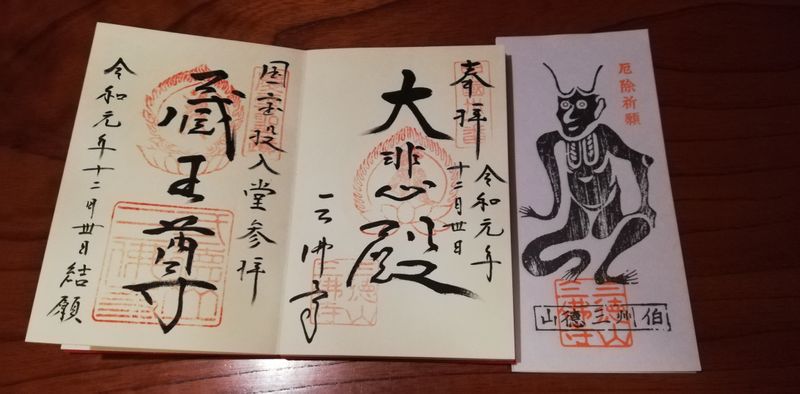 厄除祈願
伯州三德山
奉拝
令和元年
十二月卅日
大悲殿
三佛寺
国宝投入堂参拝
蔵王尊
令和元年十二月卅日結願